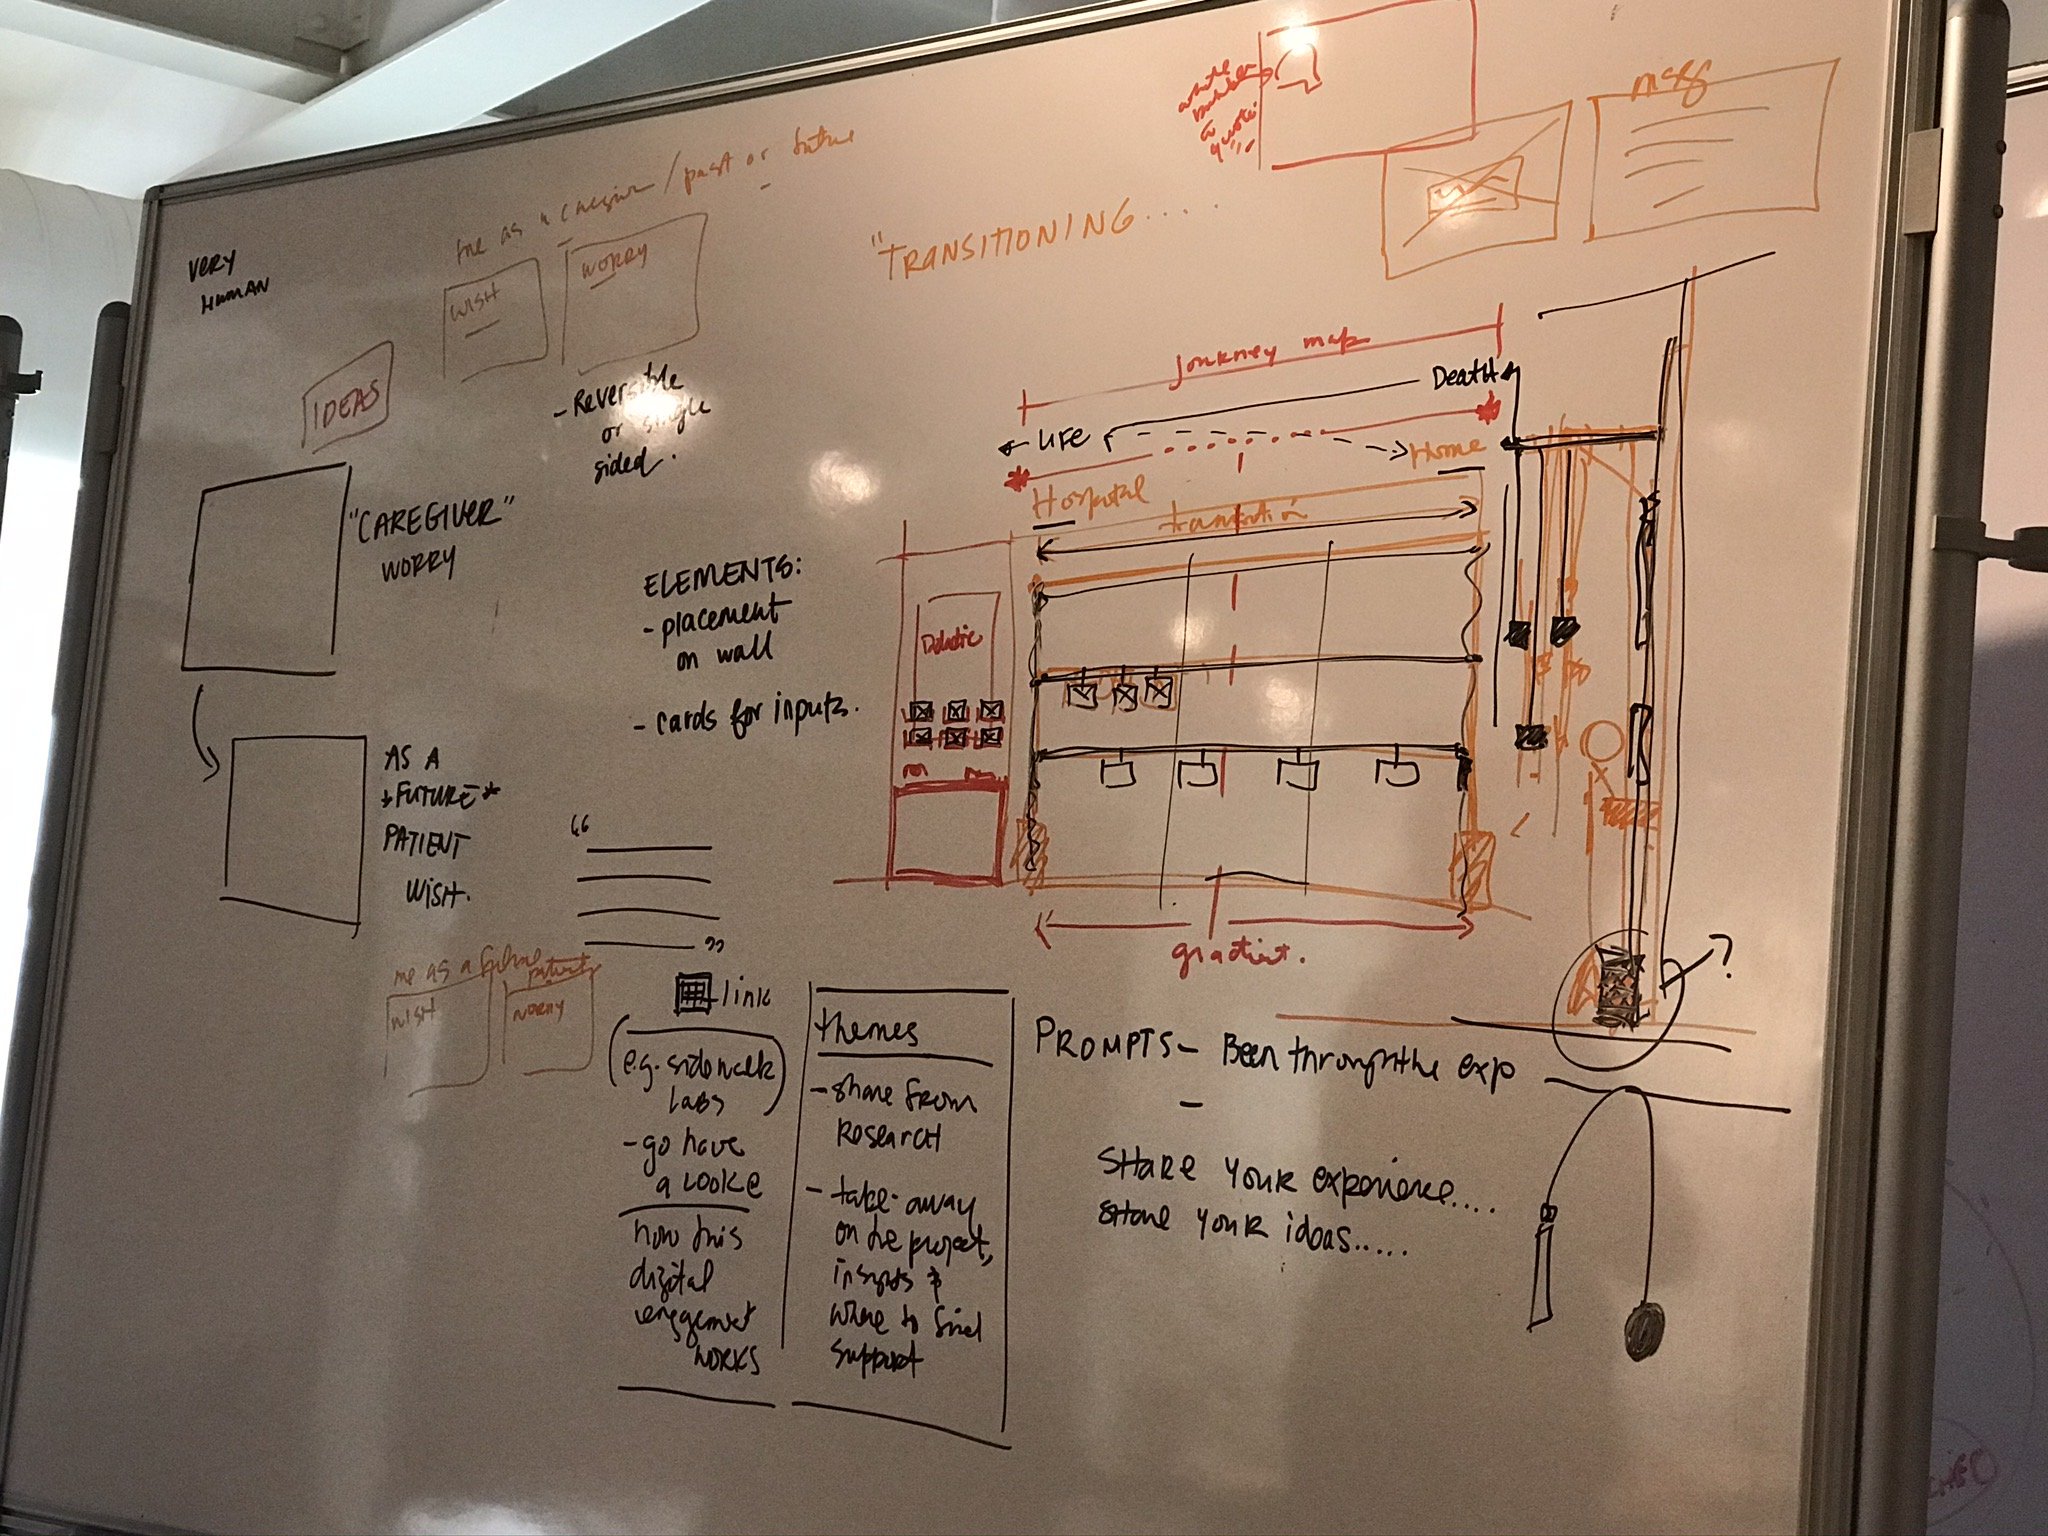 VERY
HUMAN
me as a caregiver / past or future
WISH
WORRY
IDEAS
- Reversible
or single
sided.
"CAREGIVER"
WORRY
AS A
*FUTURE*
PATIENT
WISH.
me as a future
patient
WISH
WORRY
"TRANSITIONING.....
white
a
quote
msg
journey map
Death
LIFE
Home
Hospital
transition
Didactic
gradient.
?
ELEMENTS:
- placement
on wall
- cards for inputs.
"
"
link
(e.g. sidewalk
Labs)
- go have
a look
how this
digital
engagement
works
themes
- share from
Research
- take-away
on the project,
insights &
where to find
support
PROMPTS - Been through the exp
-
SHARE your experience....
share your ideas.....